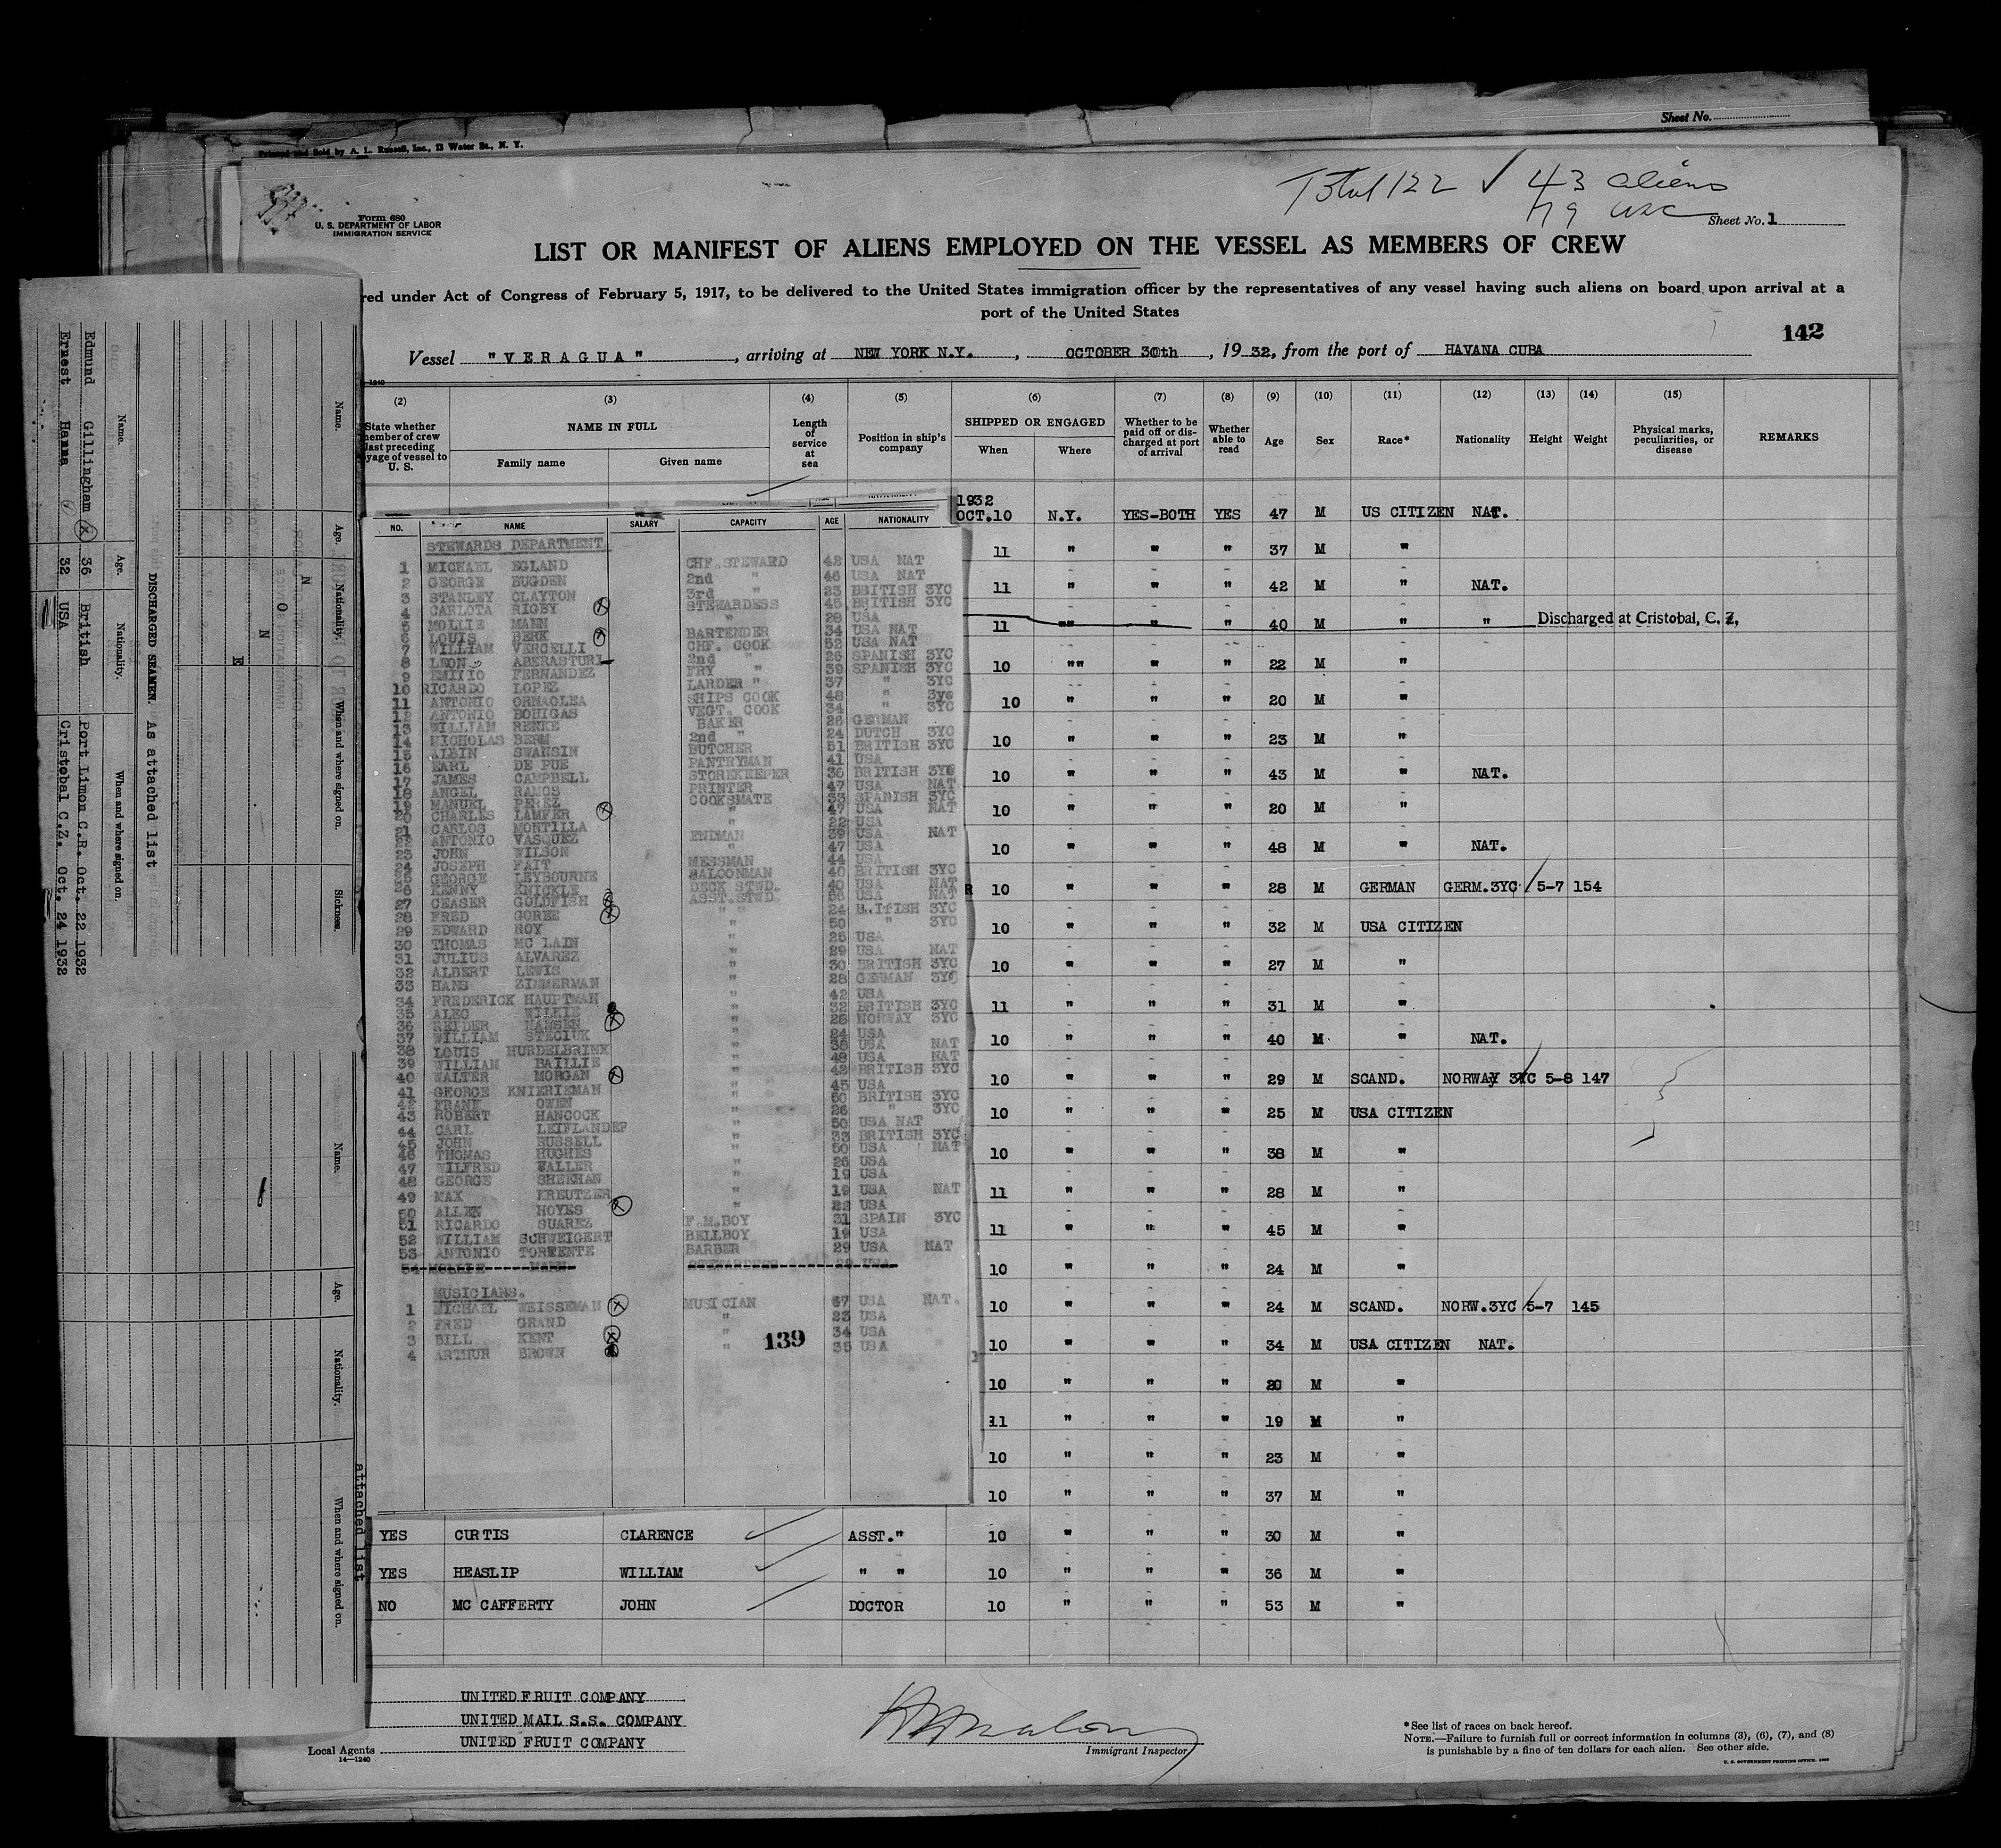 Sheet No.
Printed and Sold by A. L. Russell, Inc., 13 Water St., N. Y.
Total 122 ✓ 43 aliens
79 USC
Form 680
U. S. DEPARTMENT OF LABOR
IMMIGRATION SERVICE
Sheet No. 1
LIST OR MANIFEST OF ALIENS EMPLOYED ON THE VESSEL AS MEMBERS OF CREW
red under Act of Congress of February 5, 1917, to be delivered to the United States immigration officer by the representatives of any vessel having such aliens on board upon arrival at a
port of the United States
142
Vessel "VERAGUA", arriving at NEW YORK N.Y., OCTOBER 30th, 1932, from the port of HAVANA CUBA
(2) (3) (4) (5) (6) (7) (8) (9) (10) (11) (12) (13) (14) (15)
State whether member of crew last preceding voyage of vessel to U. S.
NAME IN FULL
Family name
Given name
Length of service at sea
Position in ship's company
SHIPPED OR ENGAGED
When
Where
Whether to be paid off or discharged at port of arrival
Whether able to read
Age
Sex
Race*
Nationality
Height
Weight
Physical marks, peculiarities, or disease
REMARKS
1932
OCT.10 N.Y. YES-BOTH YES 47 M US CITIZEN NAT.
11 " " " 37 M "
11 " " " 42 M " NAT.
11 "" " " 40 M " " Discharged at Cristobal, C. Z.
10 "" " " 22 M "
10 " " " 20 M "
10 " " " 23 M "
10 " " " 43 M " NAT.
10 " " " 20 M "
10 " " " 48 M " NAT.
R 10 " " " 28 M GERMAN GERM.3YC 5-7 154
10 " " " 32 M USA CITIZEN
10 " " " 27 M "
11 " " " 31 M "
10 " " " 40 M " NAT.
10 " " " 29 M SCAND. NORWAY 3YC 5-8 147
10 " " " 25 M USA CITIZEN
10 " " " 38 M "
11 " " " 28 M "
11 " " " 45 M "
10 " " " 24 M "
10 " " " 24 M SCAND. NORW.3YC 5-7 145
10 " " " 34 M USA CITIZEN NAT.
10 " " " 20 M "
11 " " " 19 M "
10 " " " 23 M "
10 " " " 37 M "
YES CURTIS CLARENCE ASST." 10 " " " 30 M "
YES HEASLIP WILLIAM " " 10 " " " 36 M "
NO MC CAFFERTY JOHN DOCTOR 10 " " " 53 M "
NO. NAME SALARY CAPACITY AGE NATIONALITY
STEWARDS DEPARTMENT
1 MICHAEL EGLAND CHF. STEWARD 42 USA NAT
2 GEORGE BUGDEN 2nd " 46 USA NAT
3 STANLEY CLAYTON 3rd " 23 BRITISH 3YC
4 CARLOTA RIGBY STEWARDESS 45 BRITISH 3YC
5 MOLLIE MANN " 28 USA
6 LOUIS BERK BARTENDER 34 USA NAT
7 WILLIAM VERCELLI CHF. COOK 52 USA NAT
8 LEON ABERASTURI 2nd " 26 SPANISH 3YC
9 EMILIO FERNANDEZ FRY " 39 SPANISH 3YC
10 RICARDO LOPEZ LARDER " 37 " 3YC
11 ANTONIO ORMAOLEA SHIPS COOK 48 " 3yc
12 ANTONIO BOHIGAS VEGT. COOK 34 " 3YC
13 WILLIAM RENKE BAKER 26 GERMAN
14 NICHOLAS BERM 2nd " 24 DUTCH 3YC
15 ALBIN SWANSIN BUTCHER 51 BRITISH 3YC
16 EARL DE PUE PANTRYMAN 41 USA
17 JAMES CAMPBELL STOREKEEPER 36 BRITISH 3YC
18 ANGEL RAMOS PRINTER 47 USA NAT
19 MANUEL PEREZ COOKSMATE 33 SPANISH 3YC
20 CHARLES LAMFER " 47 USA NAT
21 CARLOS MONTILLA " 22 USA
22 ANTONIO VASQUEZ ENDMAN 39 USA NAT
23 JOHN WILSON " 47 USA
24 JOSEPH FAIT MESSMAN 44 USA
25 GEORGE LEYBOURNE SALOONMAN 40 BRITISH 3YC
26 KENNY KNICKLE DECK STWD. 40 USA NAT
27 CEASER GOLDFISH ASST.STWD. USA NAT
28 FRED GOREE " 24 3YC
29 EDWARD ROY " 50 " 3YC
30 THOMAS MC LAIN " 25 USA
31 JULIUS ALVAREZ " 29 USA NAT
32 ALBERT LEWIS " 30 BRITISH 3YC
33 HANS ZIMMERMAN " 28 GERMAN 3YC
34 FREDERICK HAUPTMAN " 42 USA
35 ALEC WILKIE " 32 BRITISH 3YC
36 REIDER HANSEN " 28 NORWAY 3YC
37 WILLIAM STECIUK " 24 USA
38 LOUIS HURDELBRINK " USA NAT
39 WILLIAM BAILLIE " 48 USA NAT
40 WALTER MORGAN " 42 BRITISH 3YC
41 GEORGE KNIERIEMAN " 45 USA
42 FRANK OWEN " 50 BRITISH 3YC
43 ROBERT HANCOCK " 26 " 3YC
44 CARL LEIFLANDER " 50 USA NAT
45 JOHN RUSSELL " 33 BRITISH 3YC
46 THOMAS HUGHES " 50 USA NAT
47 WILFRED WALLER " 26 USA
48 GEORGE SHEEHAN " 19 USA
49 MAX KREUTZER " 19 USA NAT
50 ALLEN HOYES " 22 USA
51 RICARDO SUAREZ F.M.BOY 31 SPAIN 3YC
52 WILLIAM SCHWEIGERT BELLBOY 19 USA
53 ANTONIO TORRENTE BARBER 29 USA NAT
54 MOLLIE MANN STEWARDESS 28 USA
MUSICIANS.
1 MICHAEL WEISSEMAN MUSICIAN 37 USA NAT.
2 FRED GRAND " 23 USA
3 BILL KENT " 34 USA
4 ARTHUR BROWN " 35 USA
139
UNITED FRUIT COMPANY
UNITED MAIL S.S. COMPANY
UNITED FRUIT COMPANY
Local Agents
14—1240
Immigrant Inspector
*See list of races on back hereof.
NOTE.—Failure to furnish full or correct information in columns (3), (6), (7), and (8)
is punishable by a fine of ten dollars for each alien. See other side.
U. S. GOVERNMENT PRINTING OFFICE
Name. Age. Nationality. When and where signed on. Sickness.
NONE
DISCHARGED SEAMEN. As attached list
Name. Age. Nationality. When and where signed on.
Edmund Gillingham 36 British Port Limon C.R. Oct. 22 1932
Ernest Hamma 32 USA Cristobal C.Z. Oct. 24 1932
Name. Age. Nationality. When and where signed on.
attached list